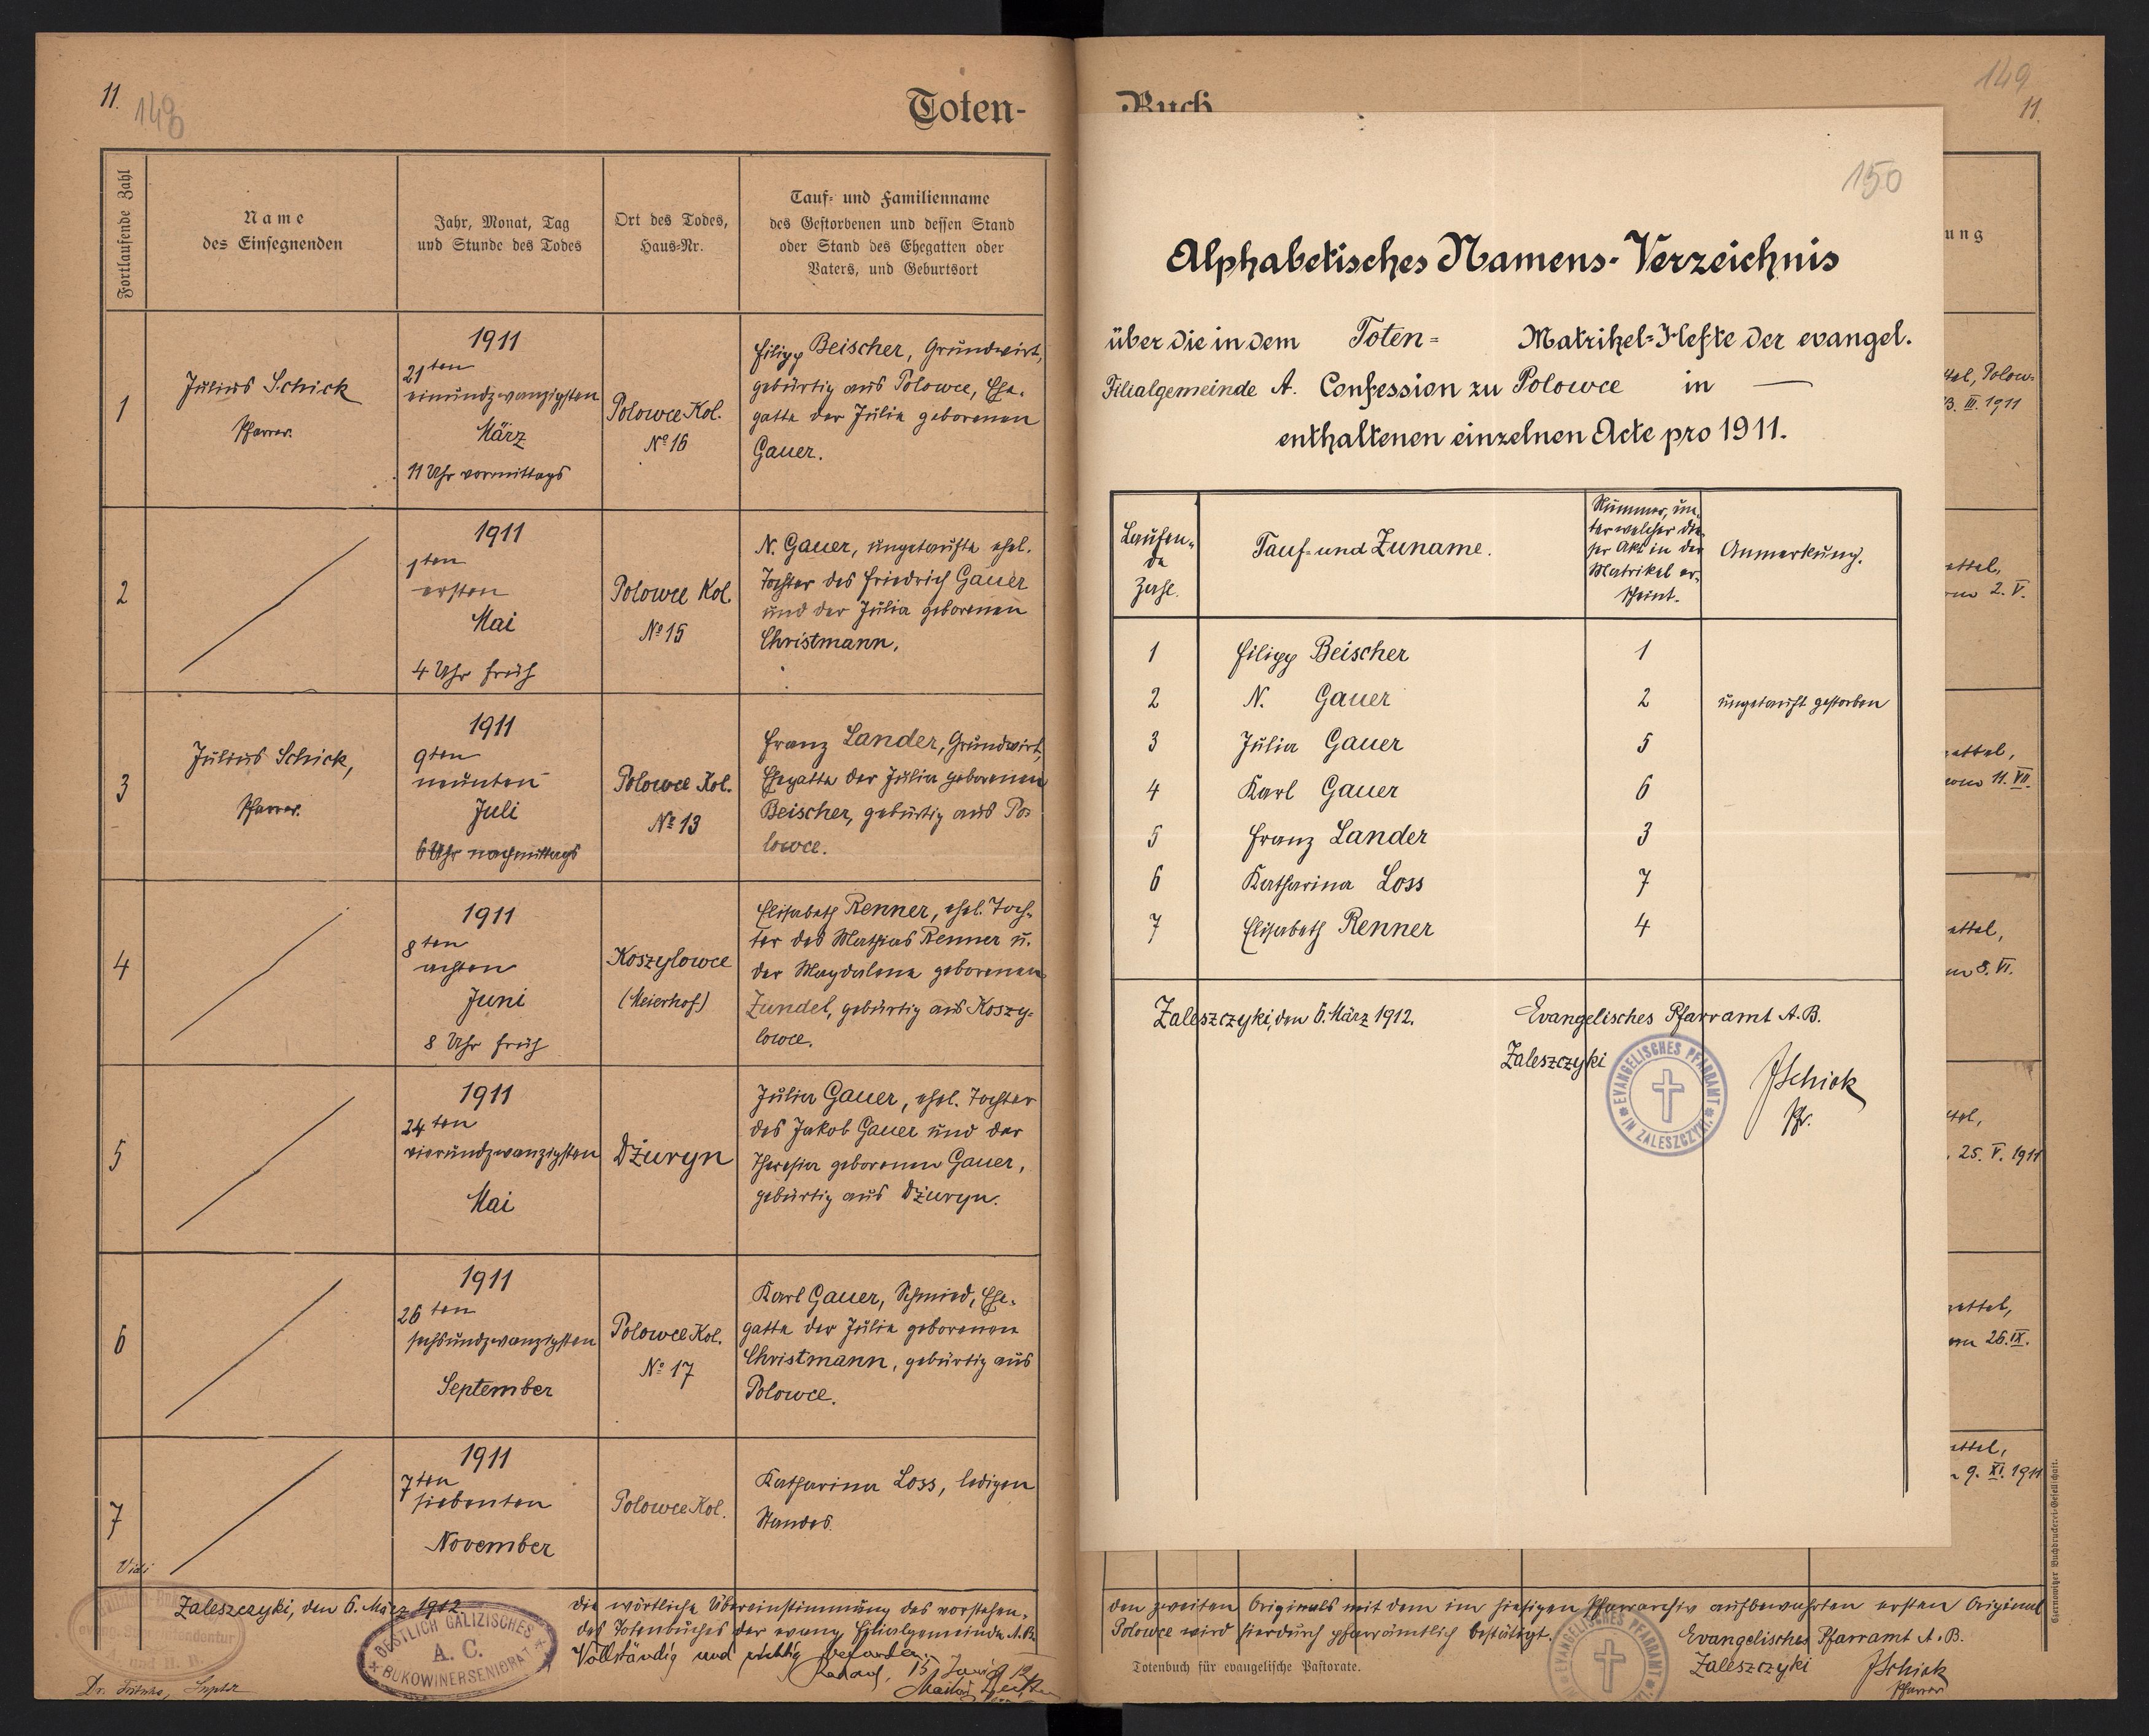 11.
148
Toten-
Fortlaufende Zahl
Name
des Einsegnenden
Jahr, Monat, Tag
und Stunde des Todes
Ort des Todes,
Haus-Nr.
Tauf- und Familienname
des Gestorbenen und dessen Stand
oder Stand des Ehegatten oder
Vaters, und Geburtsort
1
Julius Schick
Pfarrer.
1911
21ten
einundzwanzigsten
März
11 Uhr vormittags
Polowce Kol.
Nº 16
Filipp Beischer, Grundwirt,
gebürtig aus Polowce, Ehe-
gatte der Julia geborenen
Gauer.
2
1911
1ten
ersten
Mai
4 Uhr früh
Polowce Kol.
Nº 15
N. Gauer, ungetaufte ehel.
Tochter des Friedrich Gauer
und der Julia geborenen
Christmann.
3
Julius Schick,
Pfarrer.
1911
9ten
neunten
Juli
6 Uhr nachmittags
Polowce Kol.
Nº 13
Franz Lander, Grundwirt,
Ehegatte der Julia geborenen
Beischer, gebürtig aus Po-
lowce.
4
1911
8ten
achten
Juni
8 Uhr früh
Koszylowce
(Meierhof)
Elisabeth Renner, ehel. Toch-
ter des Mathias Renner u.
der Magdalena geborenen
Zundel, gebürtig aus Koszy-
lowce.
5
1911
24ten
vierundzwanzigsten
Mai
Dżuryn
Julia Gauer, ehel. Tochter
des Jakob Gauer und der
Theresia geborenen Gauer,
gebürtig aus Dżuryn.
6
1911
26ten
sechsundzwanzigsten
September
Polowce Kol.
Nº 17
Karl Gauer, Schmied, Ehe-
gatte der Julia geborenen
Christmann, gebürtig aus
Polowce.
7
1911
7ten
siebenten
November
Polowce Kol.
Katharina Loss, ledigen
Standes.
Vidi
Zaleszczyki, den 6. März 1912.
OESTLICH GALIZISCHES
A. C.
BUKOWINER SENIORAT
und H. B.
die wörtliche Übereinstimmung des vorstehen-
des Totenbuches der evang. Filialgemeinde A.B.
Vollständig und richtig befunden.
Buch
149
11.
150
Alphabetisches Namens-Verzeichnis
über die in dem Toten= Matrikel-Hefte der evangel.
Filialgemeinde A. Confession zu Polowce in —
enthaltenen einzelnen Acte pro 1911.
Laufen-
de
Zahl.
Tauf- und Zuname.
Nummer, un-
ter welcher die-
ser Akt in der
Matrikel er-
scheint.
Anmerkung.
1 Filipp Beischer 1
2 N. Gauer 2 ungetauft gestorben
3 Julia Gauer 5
4 Karl Gauer 6
5 Franz Lander 3
6 Katharina Loss 7
7 Elisabeth Renner 4
Zaleszczyki, den 6. März 1912.
Evangelisches Pfarramt A.B.
Zaleszczyki
EVANGELISCHES PFARRAMT
IN ZALESZCZYKI
JSchick
Pfr.
ung
Polow-
III. 1911
2. V.
11. VII.
8. VI.
25. V. 1911
26. IX.
9. XI. 1911
den zweiten Originals mit dem im hiesigen Pfarrarchiv aufbewahrten ersten Original
Polowce wird hierdurch pfarrämtlich bestätigt.
Evangelisches Pfarramt A.B.
Zaleszczyki
JSchick
Pfarrer
Totenbuch für evangelische Pastorate.
Czernowitzer Buchdruckerei-Gesellschaft.